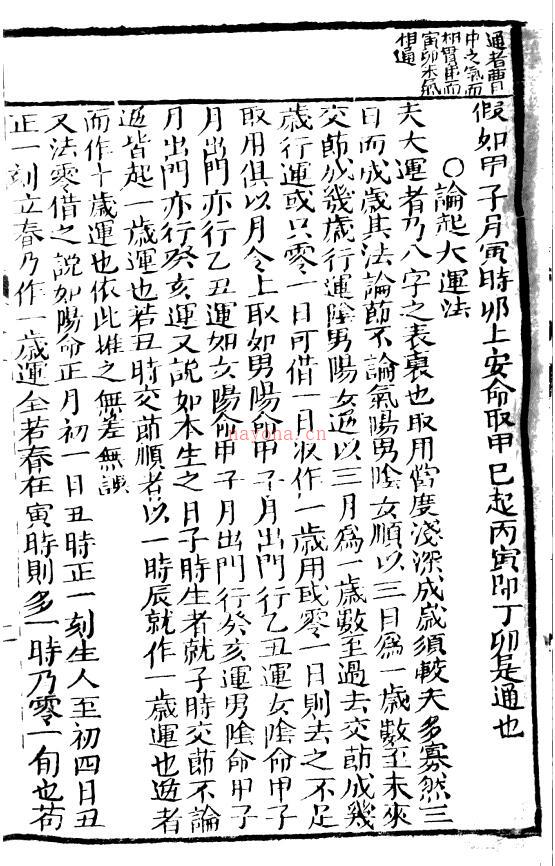 通者曹
中之氣而
柟胃甫而
寅卯未氣
相通
假如甲子月寅時卯上安命取甲巳起丙寅即丁卯是通也
○論起大運法
夫大運者乃八字之表裏也取用當度淺深成歲須較夫多寡然三
日而成歲其法論節不論氣陽男陰女順以三日為一歲數至未來
交節成幾歲行運陰男陽女逆以三月為一歲數至過去交節成幾
歲行運或只零一日可借一月湊作一歲用或零一日則去之不足
取用俱以月令上取如男陽命甲子月出門行乙丑運女陰命甲子
月出門亦行乙丑運如女陽命甲子月出門行癸亥運男陰命甲子
月出門亦行癸亥運又說如本生之日子時生者就子時交節不論
逆皆起一歲運也若丑時交節順者以一時辰就作一歲運也逆者
而作十歲運也依此推之無差無誤
又法零借之說如陽命正月初一日丑時正一刻生人至初四日丑
正一刻立春乃作一歲運全若春在寅時則多一時乃零一旬也苟
nayona.cn